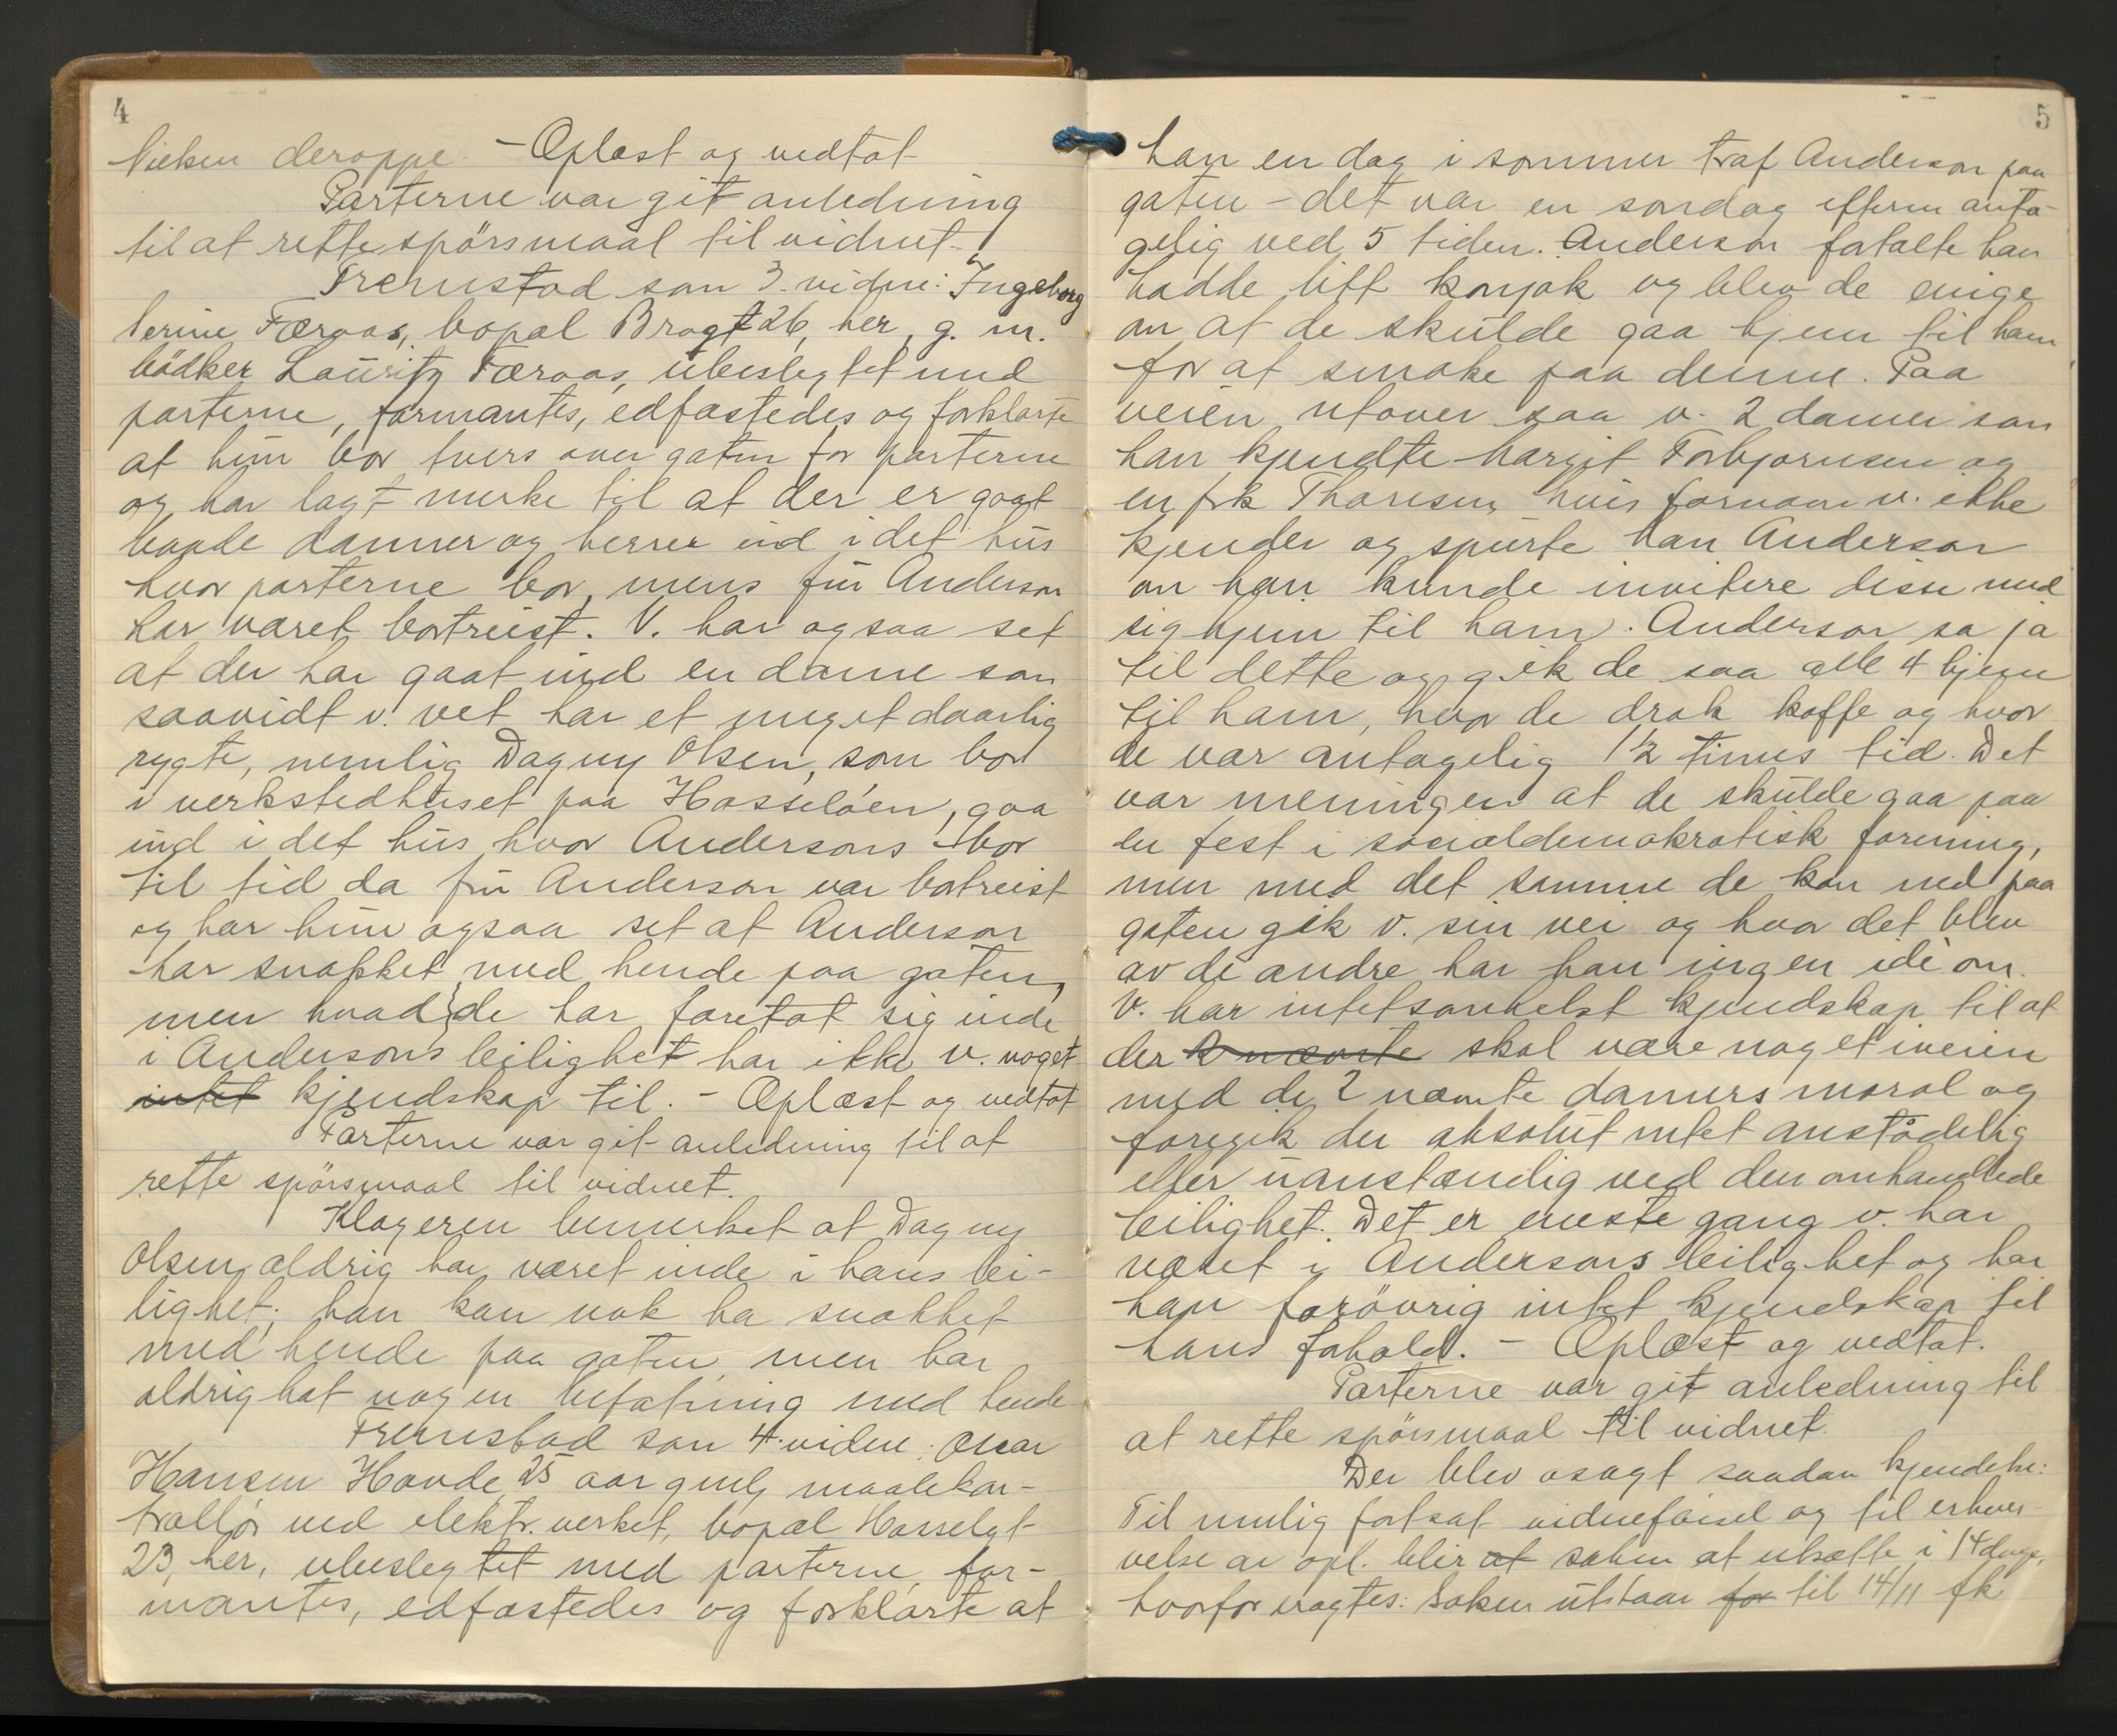 4
deroppe. - Oplæst og vedtat
Parterne var git anledning
til at rette spörsmaal til vidnet.
Fremstod som 3. vidne: Ingeborg
Færaas, bopæl Bragt 26, her, g. m.
bödker Lauritz Færaas, ubeslegtet med
parterne, formantes, edfæstedes og forklarte
at hun bor tvers over gaten for parterne
og har lagt merke til at der er gaat
baade damer og herrer ind i det hus
hvor parterne bor, mens fru Anderson
har været bortreist. V. har ogsaa set
at der har gaat ind en dame som
saavidt v. vet har et meget daarlig
rygte, nemlig Dagny Olsen, som bor
i verkstedhuset paa Hasseløen, gaa
ind i det hus hvor Andersons bor
til tid da fru Anderson var bortreist
og har hun ogsaa set at Anderson
har snakket med hende paa gaten,
men hvad de har foretat sig inde
i Andersons leilighet har ikke v. noget
intet kjendskap til. - Oplæst og vedtat
Parterne var git anledning til at
rette spörsmaal til vidnet.
Klageren bemerket at Dagny
Olsen aldrig har været inde i hans lei-
lighet; han kan nok ha snakket
med hende paa gaten, men har
aldrig hat nogen befatning med hende
Fremstod som 4. vidne: Oscar
Hansen Hovde 25 aar gml, maalekon-
trollør ved elektr. verket, bopæl Hasselgt
23, her, ubeslegtet med parterne, for-
mantes, edfæstedes og forklarte at
5
han en dag i sommer traf Anderson paa
gaten - det var en søndag efterm anta-
gelig ved 5 tiden. Anderson fortalte han
hadde litt konjak og blev de enige
om at de skulde gaa hjem til ham
for at smake paa denne. Paa
veien utover saa v. 2 damer som
han kjendte Margit Torbjørnsen og
en frk Thoresen hvis fornavn v. ikke
kjender og spurte han Anderson
om han kunde invitere disse med
sig hjem til ham. Anderson sa ja
til dette og gik de saa alle 4 hjem
til ham, hvor de drak kaffe og hvor
de var antagelig 1½ times tid. Det
var meningen at de skulde gaa paa
en fest i socialdemokratisk forening,
men med det samme de kom ned paa
gaten gik v. sin vei og hvor det blev
av de andre har han ingen idé om.
V. har intetsomhelst kjendskap til at
der 2 nævnte skal være noget iveien
med de 2 nævnte damers moral og
foregik der absolut intet anstödelig
eller uanstændig ved den omhandlede
leilighet. Det er eneste gang v. har
været i Andersons leilighet og har
han forövrig intet kjendskap til
hans forhold. - Oplæst og vedtat.
Parterne var git anledning til
at rette spörsmaal til vidnet.
Der blev avsagt saadan kjendelse:
Til mulig fortsat vidneførsel og til erhver-
velse av opl. blir at saken at utsætte i 14 dage,
hvorfor eragtes: Saken utstaar for til 14/11 fk